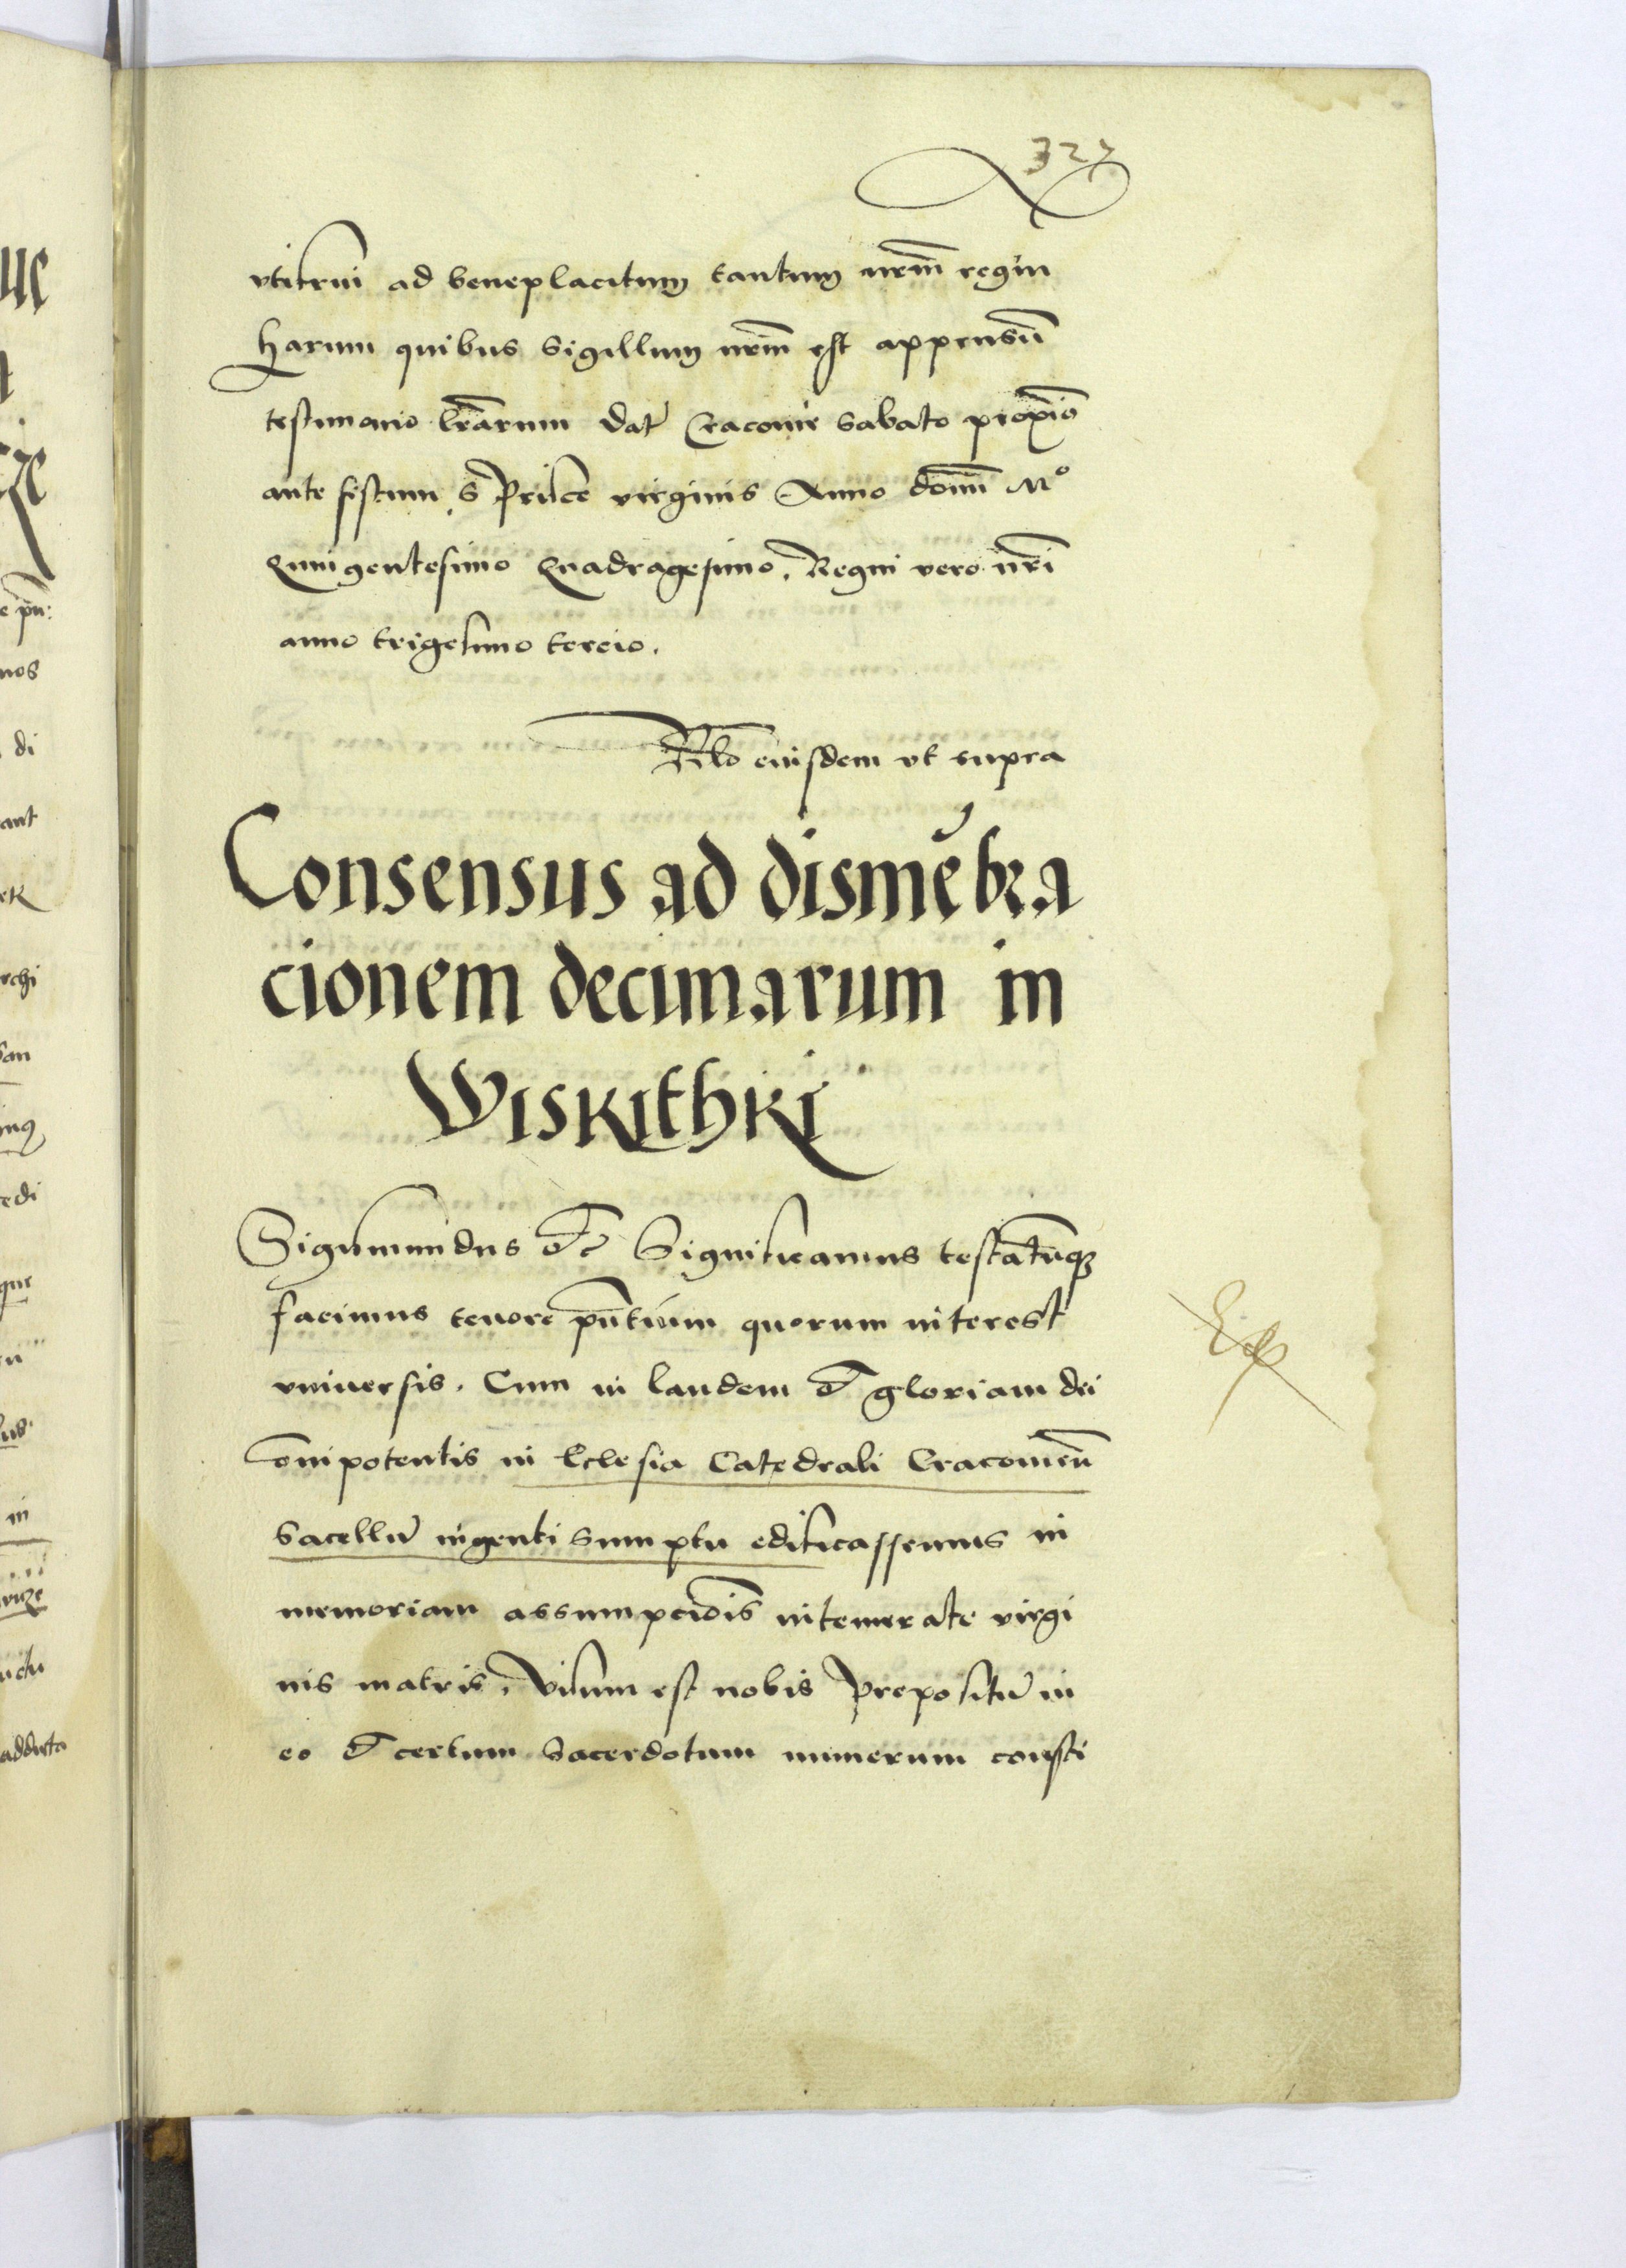 327
ad beneplacitum tantum nr̃m regiu
harum quibus Sigillum nr̃m est appensũ
testimonio lr̃arum Dat Cracovie Sabato proxiõ
ante festum S Prisce virginis Anno domĩ Mº
Quingentesimo Quadragesimo. Regni vero nr̃i
anno trigesimo tercio.
Rl̃o eiusdem vt supra
Consensus ad dismẽbra
cionem decimarum in
Wiskithki
Sigismundus &c Significamus testatũq3
facimus tenore pñtium quorum interest
vniuersis. Cum in laudem & gloriam dei
om̃ipotentis in Eclesia Catedrali Cracovieñ
Sacellũ ingenti sumptu edificassemus in
memoriam assumpciõis intemerate virgi
nis matris. Visum est nobis Prepositũ in
eo & certum Sacerdotum numerum consti